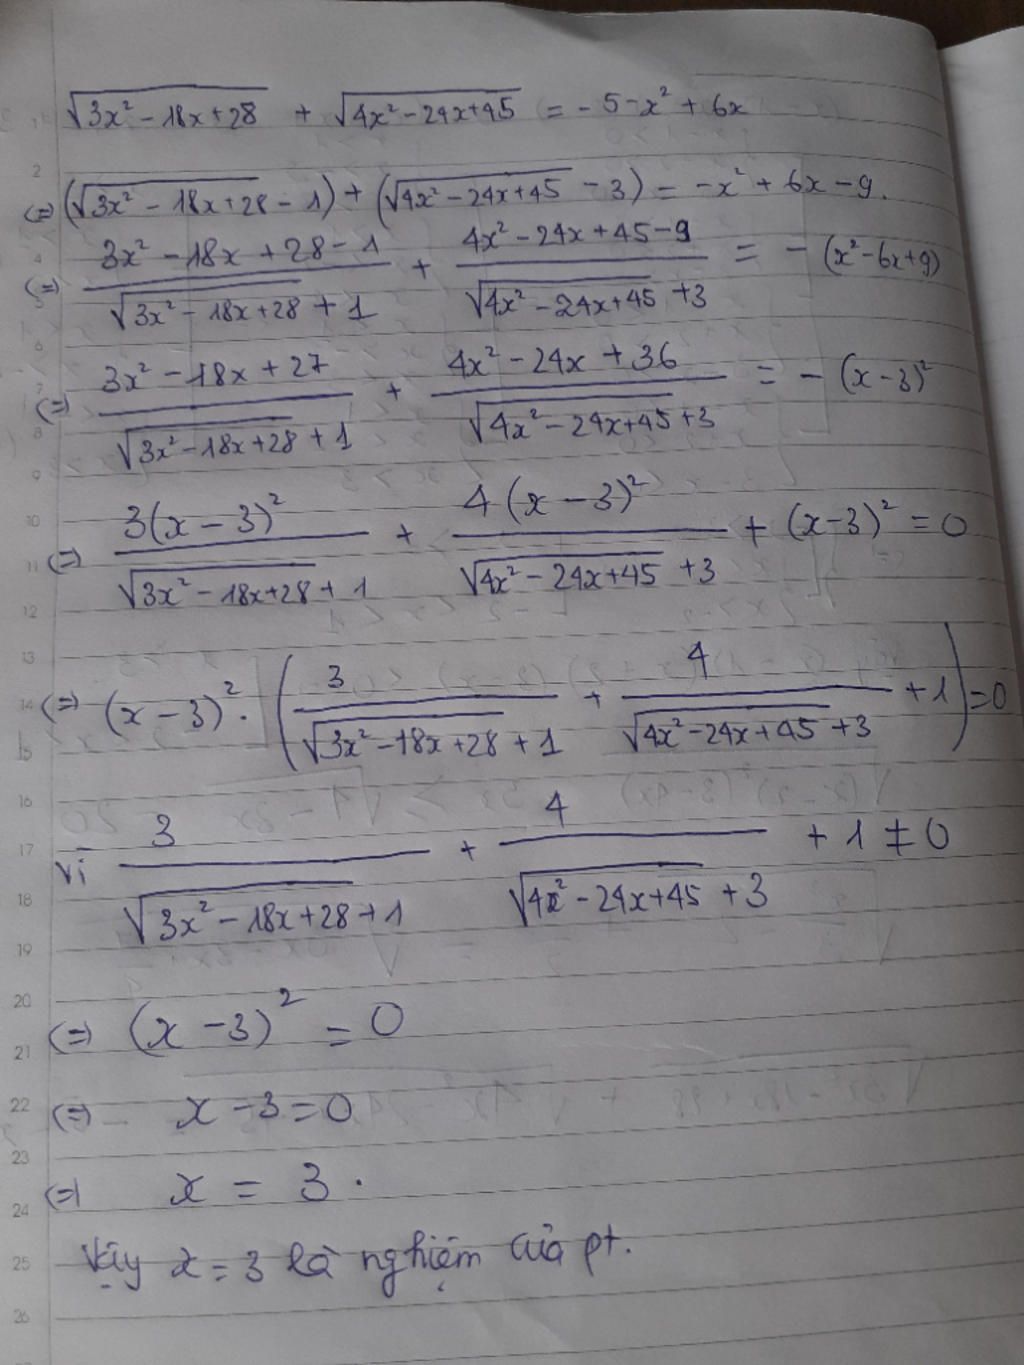 √(3x² - 18x + 28) + √(4x² - 24x + 45) = - 5 - x² + 6x
(=) (√(3x² - 18x + 28) - 1) + (√(4x² - 24x + 45) - 3) = -x² + 6x - 9.
(=) (3x² - 18x + 28 - 1)/(√(3x² - 18x + 28) + 1) + (4x² - 24x + 45 - 9)/(√(4x² - 24x + 45) + 3) = - (x² - 6x + 9)
(=) (3x² - 18x + 27)/(√(3x² - 18x + 28) + 1) + (4x² - 24x + 36)/(√(4x² - 24x + 45) + 3) = - (x - 3)²
(=) 3(x - 3)²/(√(3x² - 18x + 28) + 1) + 4(x - 3)²/(√(4x² - 24x + 45) + 3) + (x - 3)² = 0
(=) (x - 3)². (3/(√(3x² - 18x + 28) + 1) + 4/(√(4x² - 24x + 45) + 3) + 1) = 0
Vì 3/(√(3x² - 18x + 28) + 1) + 4/(√(4x² - 24x + 45) + 3) + 1 ≠ 0
(=) (x - 3)² = 0
(=) x - 3 = 0
(=) x = 3.
Vậy x = 3 là nghiệm của pt.